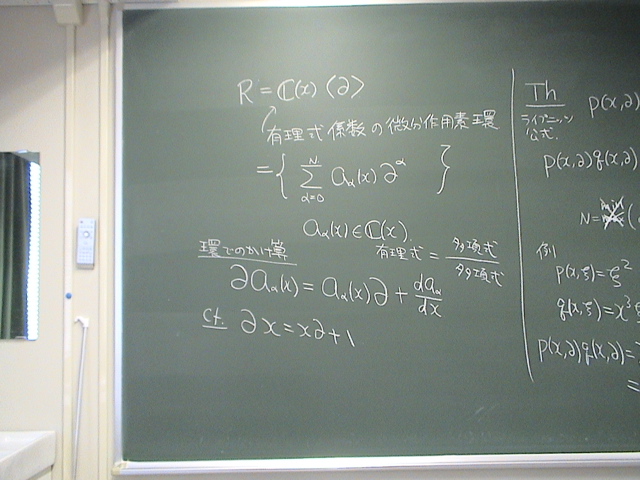 R = ℂ(x)⟨∂⟩
有理式係数の微分作用素環
= { Σ_{α=0}^{N} a_α(x) ∂^α }
a_α(x) ∈ ℂ(x).
有理式 = 多項式/多項式
環でのかけ算
∂a_α(x) = a_α(x)∂ + da_α/dx
cf. ∂x = x∂+1
Th
ライプニッツ
公式.
p(x,∂)
p(x,∂)q(x,∂)
N=
例
p(x,ξ)=ξ²
q(x,ξ)=x³
p(x,∂)q(x,∂)=
=